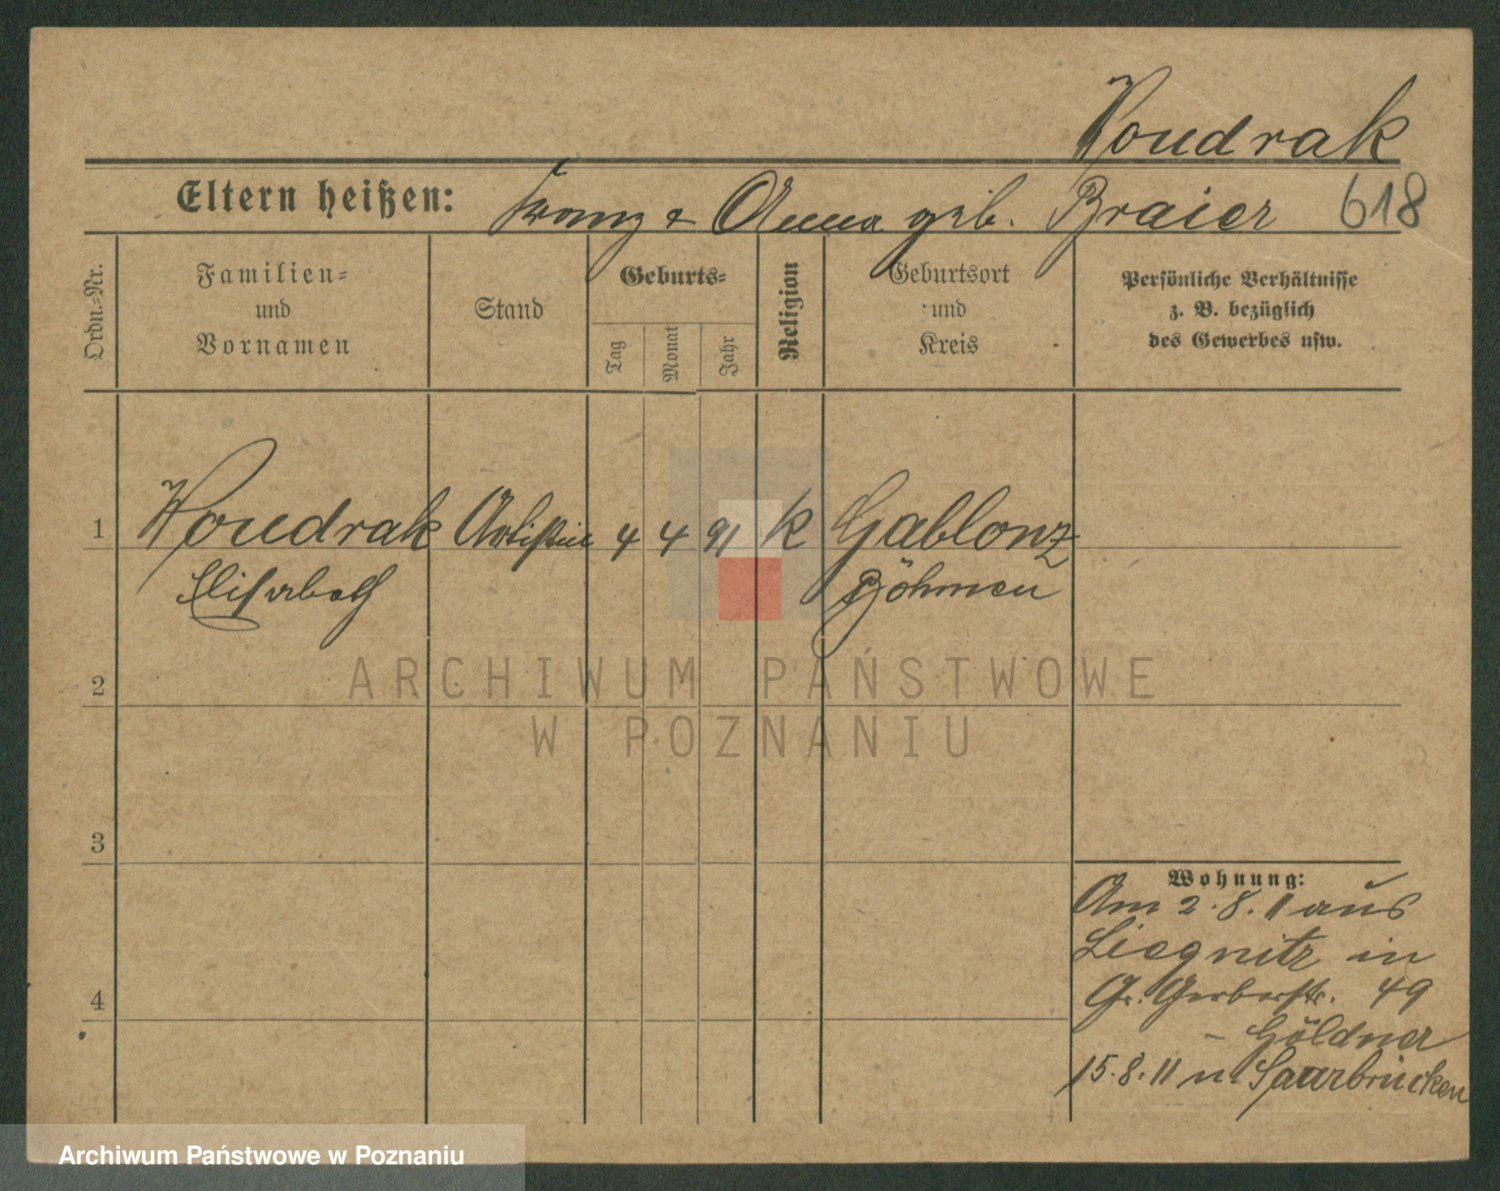 Woudrak
Eltern heißen: Franz & Anna geb. Braier 618
Ordn.-Nr.
Familien-
und
Vornamen
Stand
Geburts-
Tag
Monat
Jahr
Religion
Geburtsort
und
Kreis
Persönliche Verhältnisse
z. B. bezüglich
des Gewerbes usw.
1 Woudrak Artistin 4 4 91 k Gablonz
Elisabeth Böhmen
ARCHIWUM PAŃSTWOWE
W POZNANIU
2
3
4
Wohnung:
Am 2.8.11 aus
Liegnitz in
Gr. Gerberstr. 49
- Göldner
15.8.11 n. Saarbrücken
Archiwum Państwowe w Poznaniu